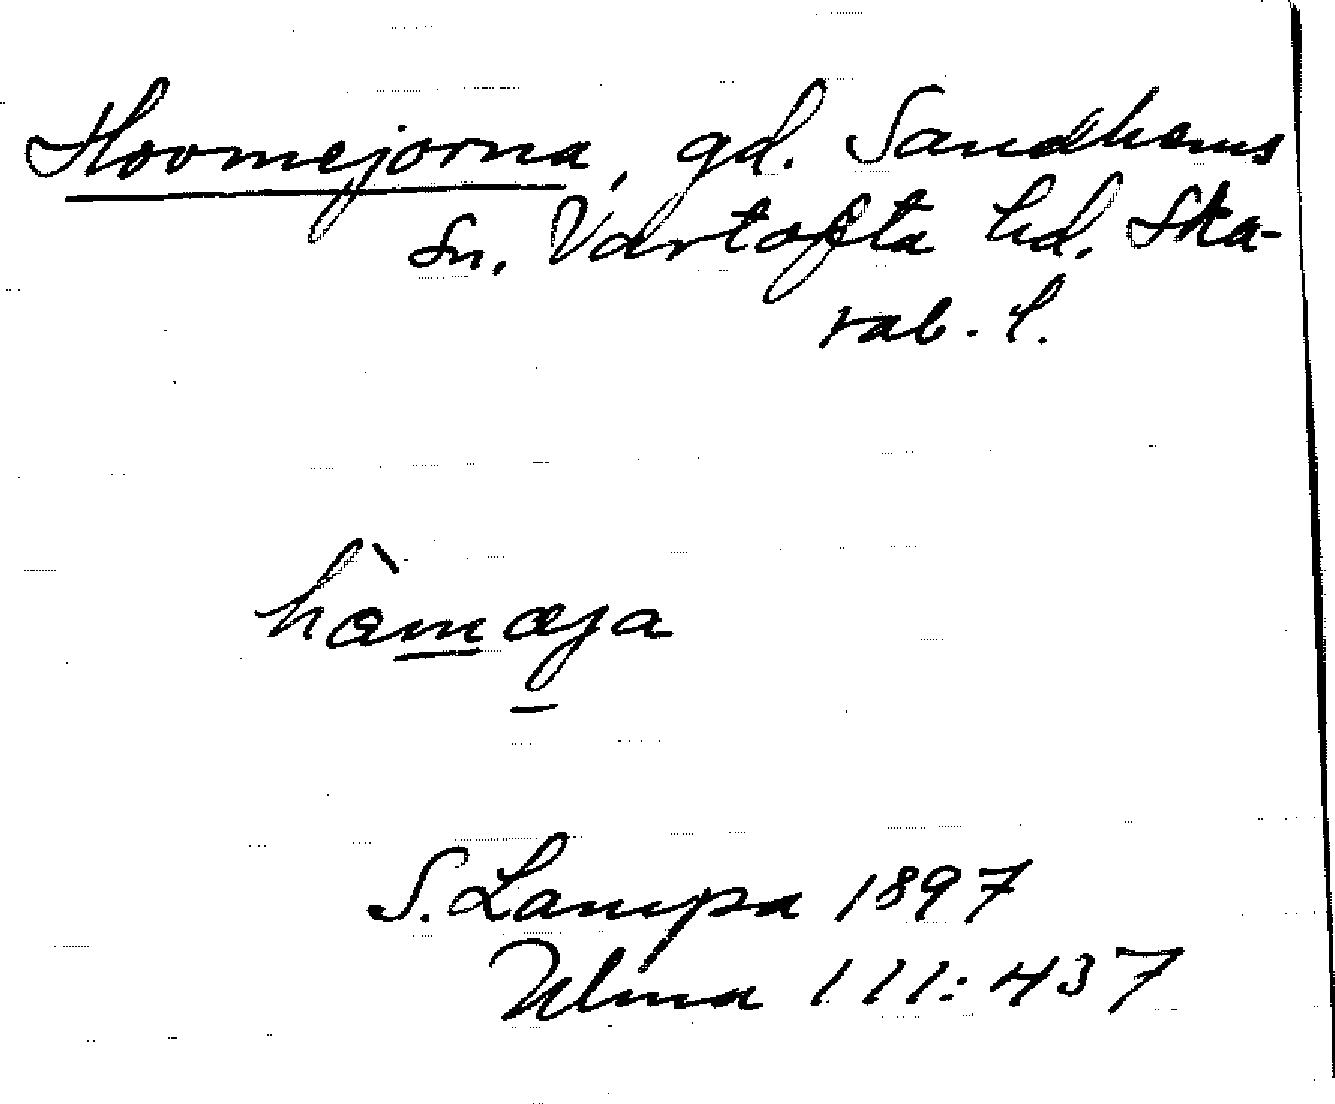 Hovmejorna, gd. Sandhems
sn. Vartofta hd. Ska-
rab. l.
hàmæja
S. Lampa 1897
Ulma 111:437